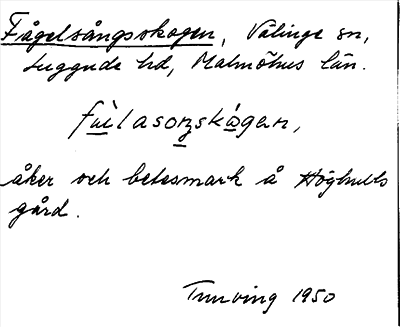 Fågelsångsskogen, Välinge sn,
Luggude hd, Malmöhus län.
fu̲i̲lasoṉzskà̲gan,
åker och betesmark å Höghulls
gård.
Tuneving 1950